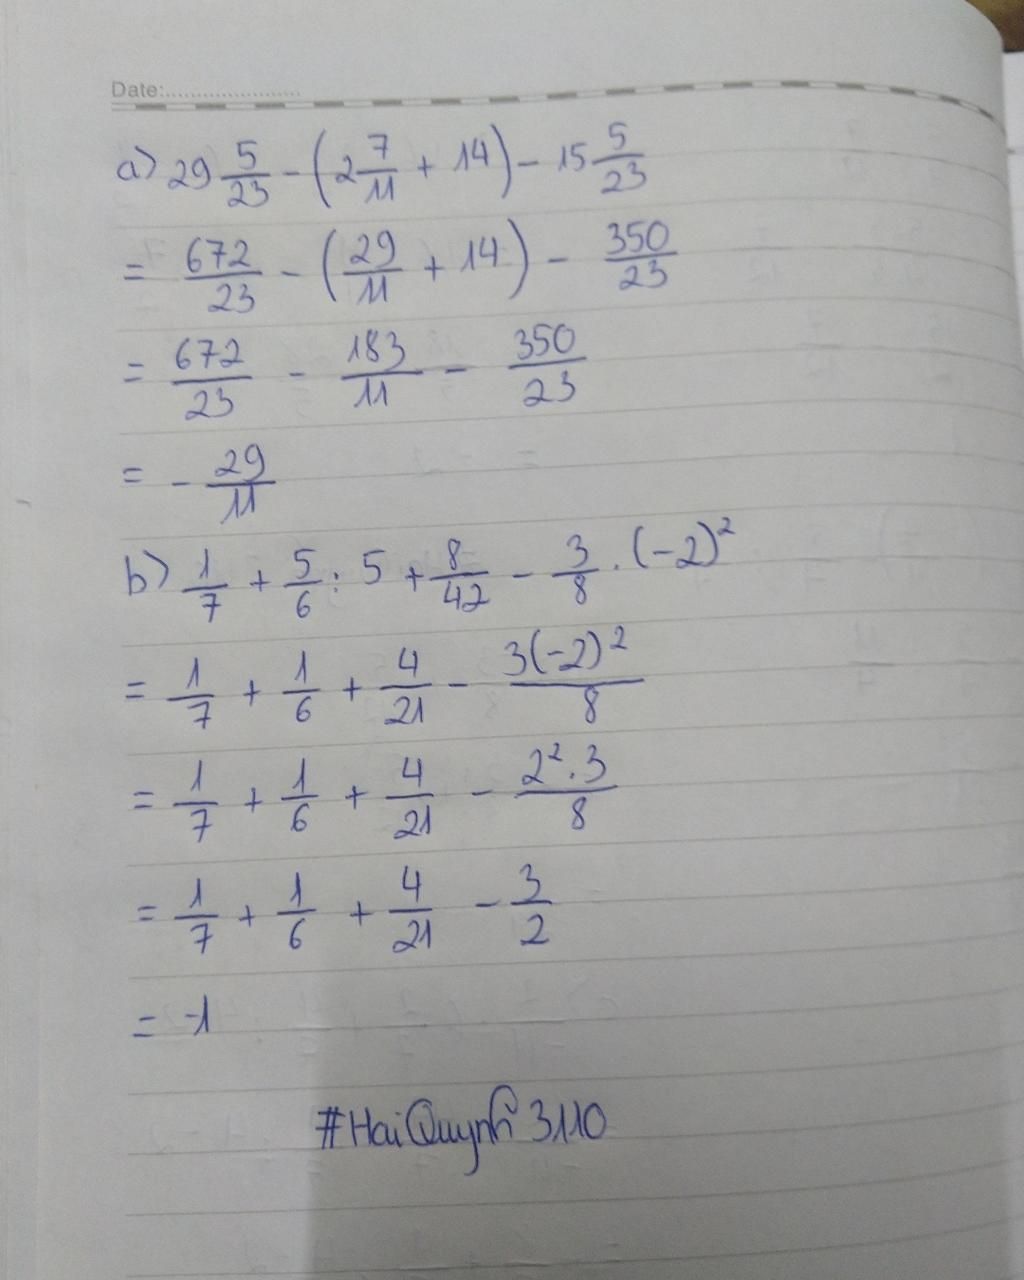 Date:.......................
a) 29 5/23 - (2 7/11 + 14) - 15 5/23
= 672/23 - (29/11 + 14) - 350/23
= 672/23 - 183/11 - 350/23
= - 29/11
b) 1/7 + 5/6 : 5 + 8/42 - 3/8 . (-2)²
= 1/7 + 1/6 + 4/21 - 3(-2)²/8
= 1/7 + 1/6 + 4/21 - 2².3/8
= 1/7 + 1/6 + 4/21 - 3/2
= -1
#HaiQuynh3110